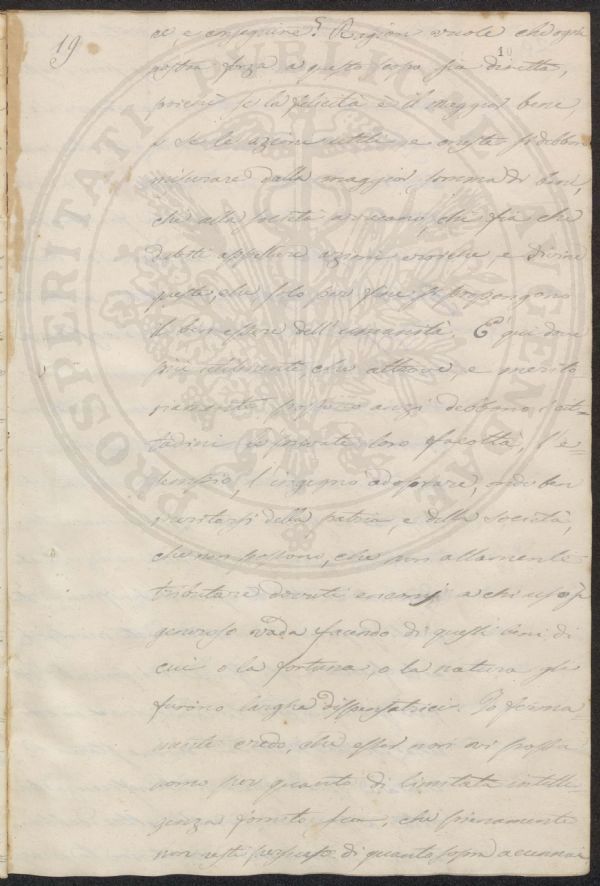 19
10
re, e conseguire? Ragion vuole che ogni
nostra forza a questo scopo sia diretta,
se la felicità è il maggior bene,
e se le azioni utili e oneste si debbon
misurare dalla maggior somma di beni,
che alla società arrecano, che fia che
debbasi appellare azioni eroiche, e divine
queste, che solo per fine si propongono
il ben essere dell'umanità. E qui dove
più utilmente, che altrove, e merito-
riamente possono anzi debbono i cit-
tadini le private loro facoltà, l'e-
sempio, l'ingegno adoprare, onde ben
meritarsi della patria, e della società,
che non possono, che non altamente
tributare dovuti encomj a chi uso sì
generoso vada facendo di quelli beni di
cui o la fortuna, o la natura gli
furono larghe dispensatrici. Io ferma-
mente credo, che esser non vi possa
uomo per quanto di limitata intelli-
genza fornito sia, che pienamente
non resti persuaso di quanto sopra accennai
PROSPERITATI PUBLICAE AUGENDAE